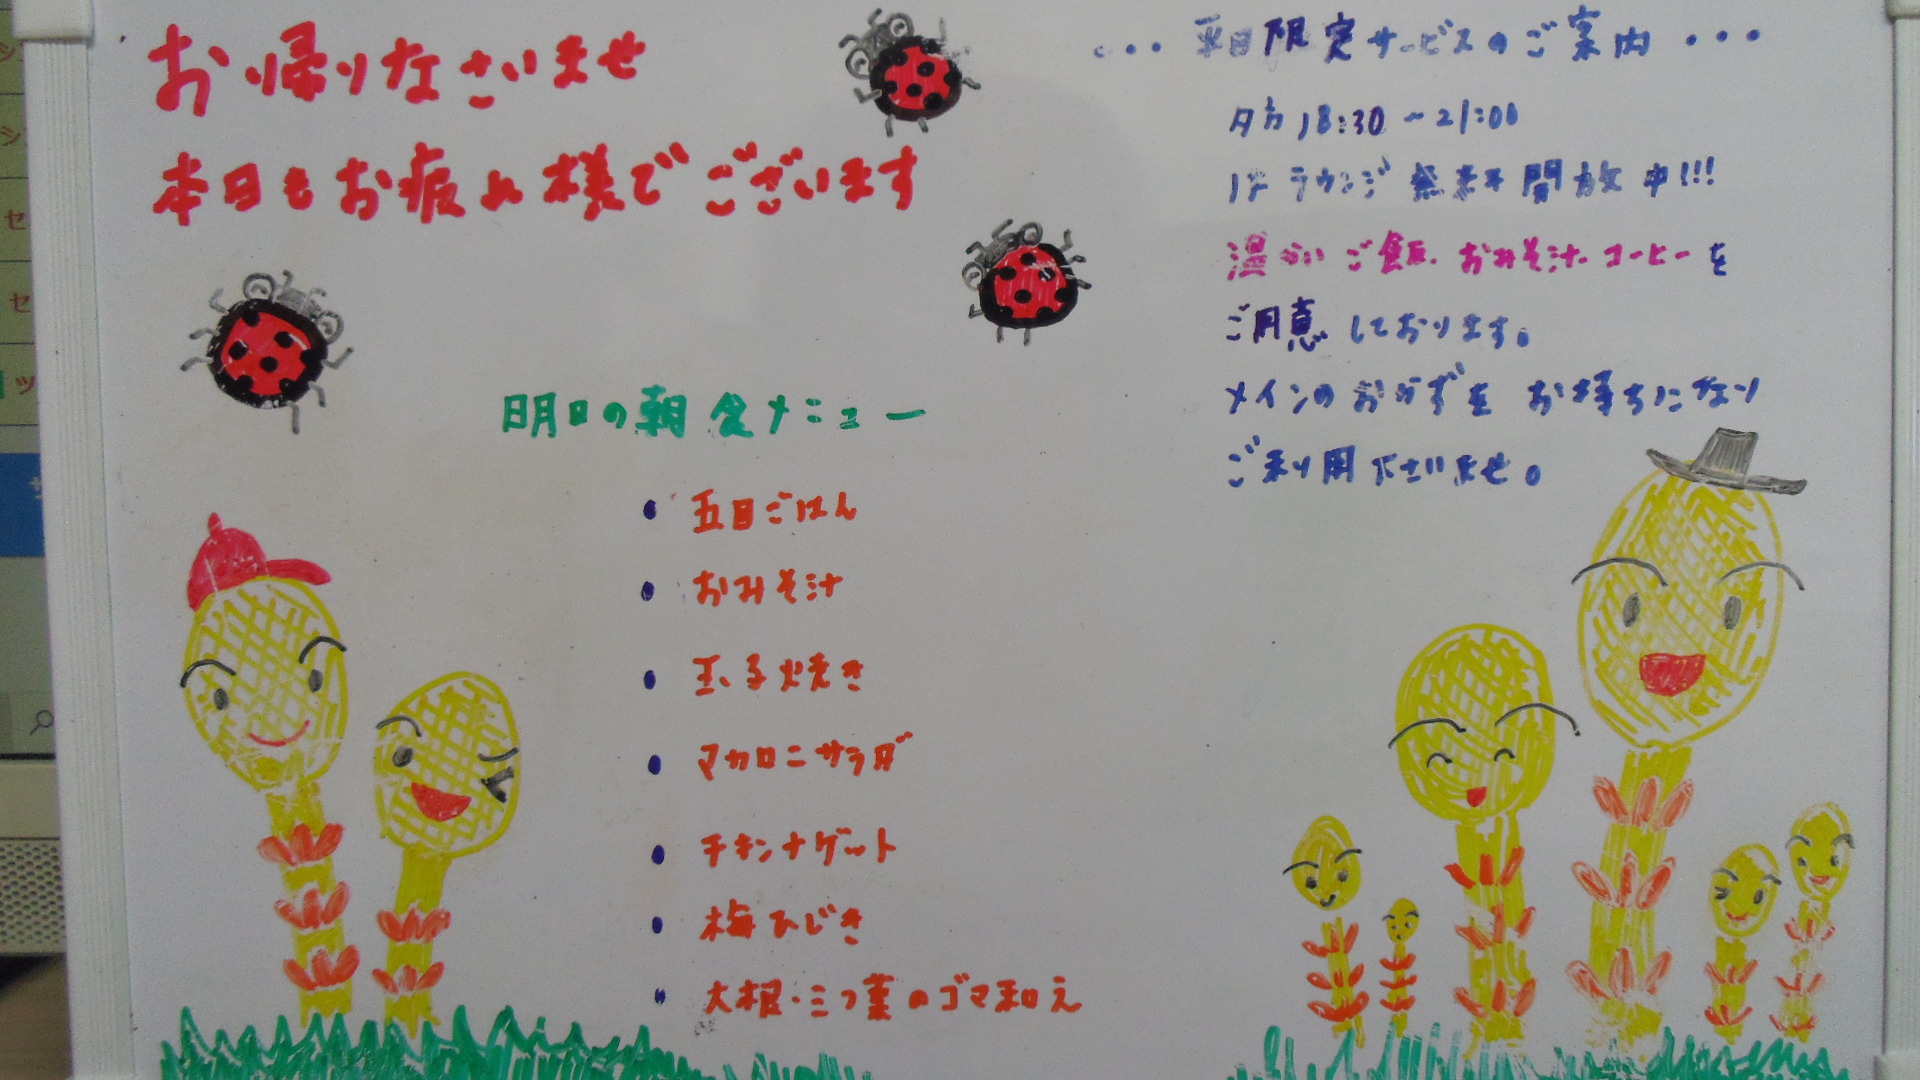 お帰りなさいませ
本日もお疲れ様でございます
明日の朝食メニュー
• 五目ごはん
• おみそ汁
• 玉子焼き
• マカロニサラダ
• チキンナゲット
• 梅ひじき
• 大根・三つ葉のゴマ和え
・・・平日限定サービスのご案内・・・
夕方18:30~21:00
1Fラウンジ無料開放中!!!
温かいご飯、おみそ汁、コーヒーを
ご用意しております。
メインのおかずをお持ちになり
ご利用下さいませ。